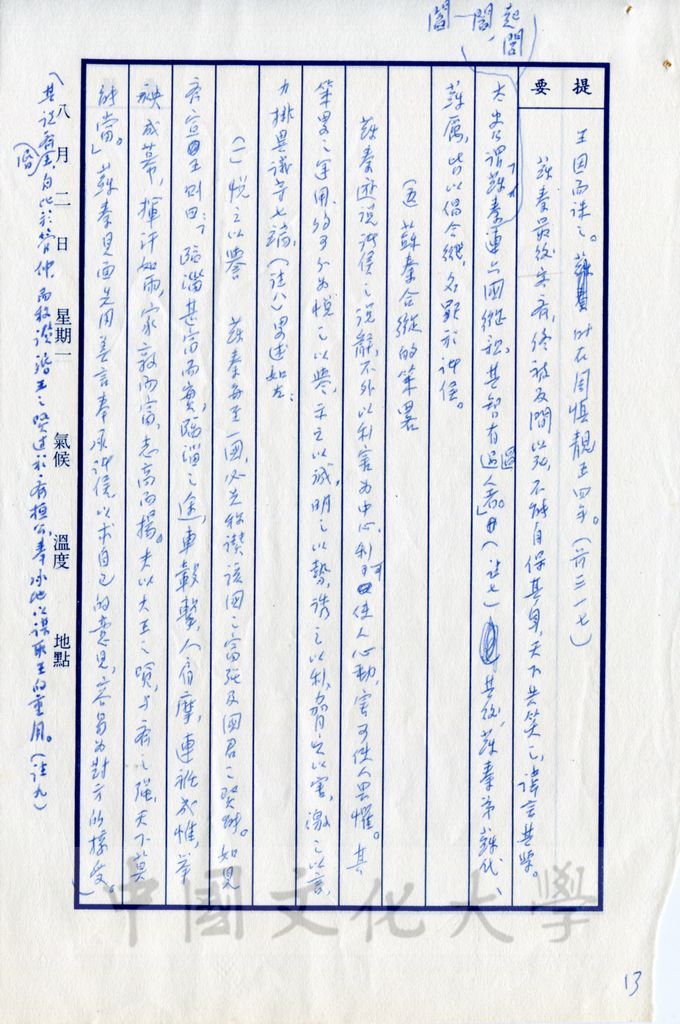 閭一閭,起
閭
提要
王因而誅之。時在周慎靚王四年。(前三一七)
蘇秦最終宋齊,終被反間以死,不能自保其身,天下共笑之,諱言其學。
太史公謂「夫蘇秦連六國縱親,其智有過人者。」(註七)其後,蘇秦弟蘇代、
蘇厲,皆以倡合縱,名顯於諸侯。
(五)蘇秦合縱的策畧
蘇秦遊說諸侯之說辭,不外以利害為中心,利可使人心動,害可使人畏懼。其
策畧之運用,約可分為悅之以譽,示之以誠,明之以勢,誘之以利,脅之以害,激之以言,
力排異議等七端,(註八)畧述如左:
(一)悅之以譽 蘇秦每至一國,必先稱讚該國之富強及國君之賢明。如見
齊宣王則曰:「臨淄甚富而實,臨淄之途,車轂擊,人肩摩,連衽成帷,舉
袂成幕,揮汗如雨,家敦而富,志高而揚。夫以大王之賢,與齊之強,天下莫
能當。」蘇秦見面先用美言奉承諸侯,以求自己的意見,容易為對方所接受。
八月二日 星期一 氣候 溫度 地點
(其說齊湣王,自比於管仲,而稱讚湣王之賢達於齊桓公,奉承他以謀取王的重用。(註九)
13
中國文化大學